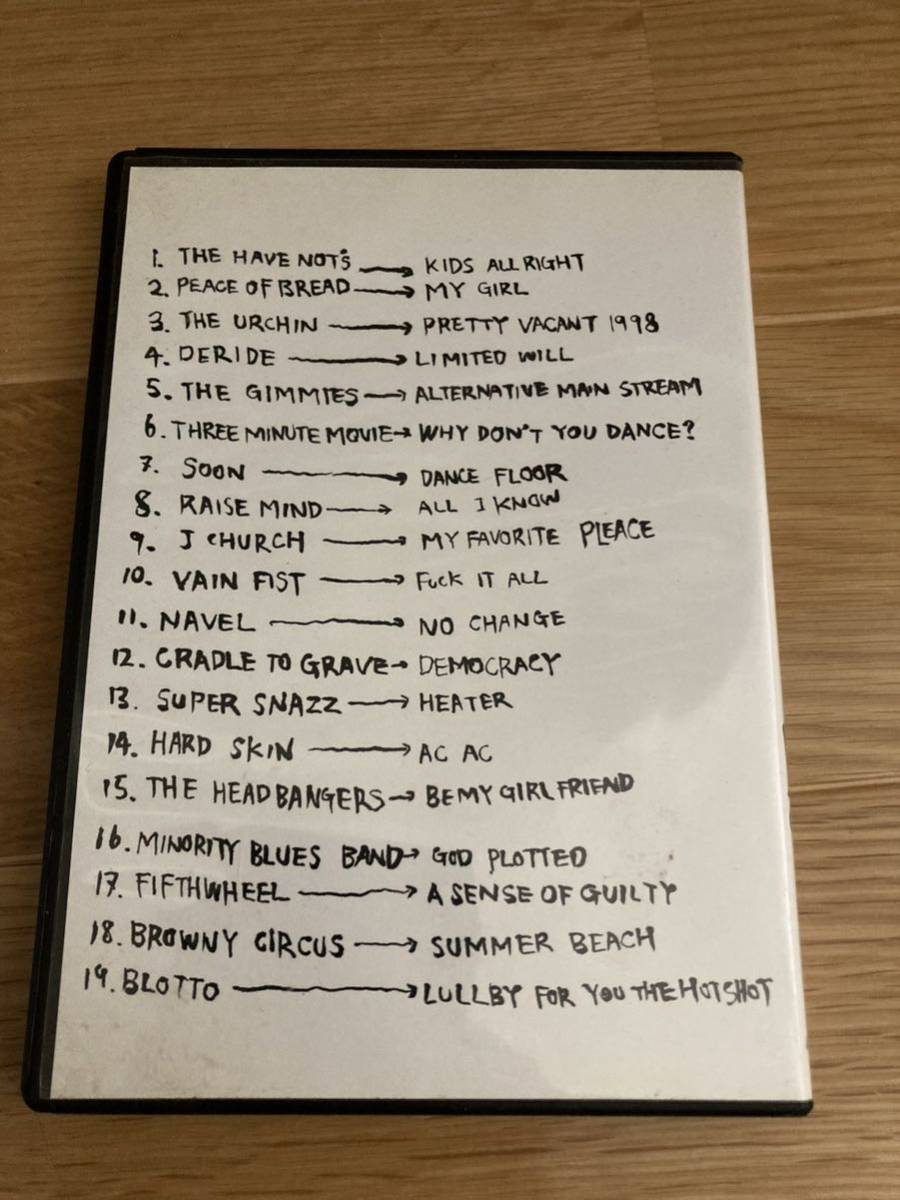 1. THE HAVE NOT'S → KIDS ALL RIGHT
2. PEACE OF BREAD → MY GIRL
3. THE URCHIN → PRETTY VACANT 1998
4. DERIDE → LIMITED WILL
5. THE GIMMIES → ALTERNATIVE MAIN STREAM
6. THREE MINUTE MOVIE → WHY DON'T YOU DANCE?
7. SOON → DANCE FLOOR
8. RAISE MIND → ALL I KNOW
9. J CHURCH → MY FAVORITE PLEACE
10. VAIN FIST → FUCK IT ALL
11. NAVEL → NO CHANGE
12. CRADLE TO GRAVE → DEMOCRACY
13. SUPER SNAZZ → HEATER
14. HARD SKIN → AC AC
15. THE HEADBANGERS → BE MY GIRL FRIEND
16. MINORITY BLUES BAND → GOD PLOTTED
17. FIFTHWHEEL → A SENSE OF GUILTY
18. BROWNY CIRCUS → SUMMER BEACH
19. BLOTTO → LULLBY FOR YOU THE HOTSHOT